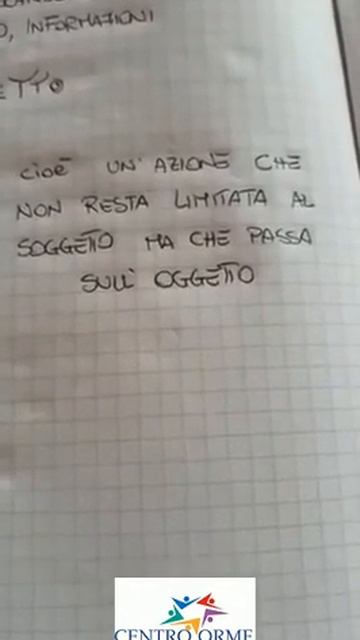 O, INFORMAZIONI
ETTO
cioè UN'AZIONE CHE
NON RESTA LIMITATA AL
SOGGETTO MA CHE PASSA
SULL'OGGETTO
CENTRO ORME